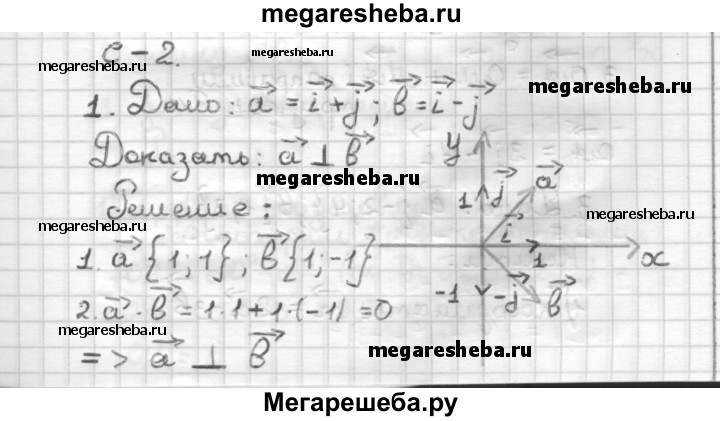 megaresheba.ru
С-2.
megaresheba.ru
megaresheba.ru
megaresheba.ru
1. Дано: a = i + j ; b = i - j
Доказать: a ⊥ b
megaresheba.ru
Решение:
megaresheba.ru
megaresheba.ru
1. a {1; 1} ; b {1; -1}
2. a · b = 1·1 + 1·(-1) = 0
megaresheba.ru
=> a ⊥ b
megaresheba.ru
y
1
j
a
i
1
x
-1
-j
b
Мегарешеба.ру